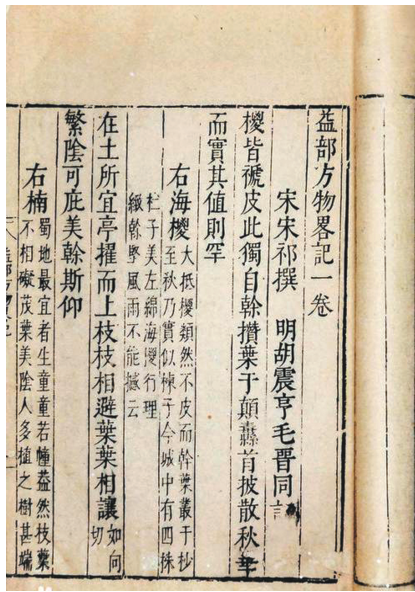 益部方物畧記一卷
宋宋祁撰　明胡震亨毛晋同
椶皆褫皮此獨自榦攢葉于顛纛首披散秋華
而實其值則罕
右海椶
大抵椶類然不皮而幹葉叢于杪
至秋乃實似楝子今城中有四株
杜子美左綿海椶行理
緻榦堅風雨不能撼云
在土所宜亭擢而上枝枝相避葉葉相讓
如向
切
繁陰可庇美榦斯仰
右楠
蜀地最宜者生童童若幢葢然枝葉
不相礙茂葉美陰人多植之樹甚端